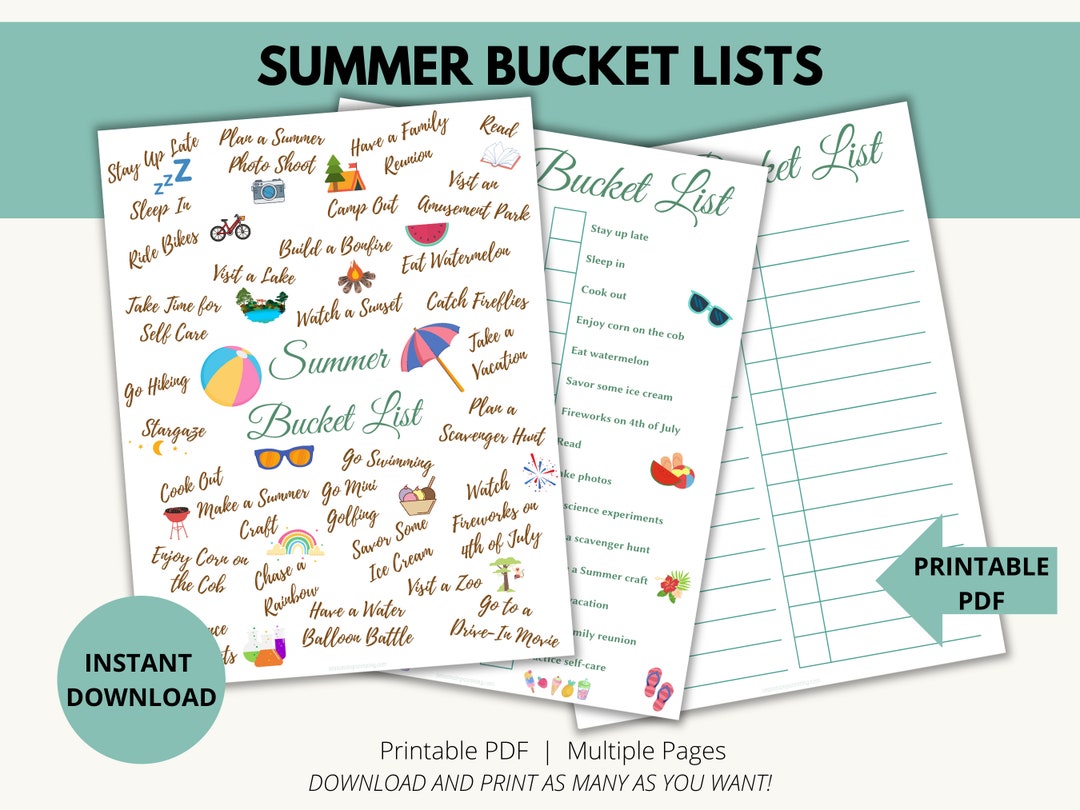 SUMMER BUCKET LISTS
Stay Up Late
zzZ
Plan a Summer
Photo Shoot
Have a Family
Reunion
Read
Sleep In
Camp Out
Visit an
Amusement Park
Ride Bikes
Build a Bonfire
Eat Watermelon
Visit a Lake
Take Time for
Self Care
Watch a Sunset
Catch Fireflies
Summer
Bucket List
Take a
Vacation
Go Hiking
Stargaze
Plan a
Scavenger Hunt
Go Swimming
Cook Out
Make a Summer
Craft
Go Mini
Golfing
Watch
Fireworks on
4th of July
Savor Some
Ice Cream
Enjoy Corn on
the Cob
Chase a
Rainbow
Visit a Zoo
Have a Water
Balloon Battle
Go to a
Drive-In Movie
Bucket List
Stay up late
Sleep in
Cook out
Enjoy corn on the cob
Eat watermelon
Savor some ice cream
Fireworks on 4th of July
Read
photos
science experiments
a scavenger hunt
a Summer craft
vacation
family reunion
self-care
List
PRINTABLE
PDF
INSTANT
DOWNLOAD
Printable PDF | Multiple Pages
DOWNLOAD AND PRINT AS MANY AS YOU WANT!